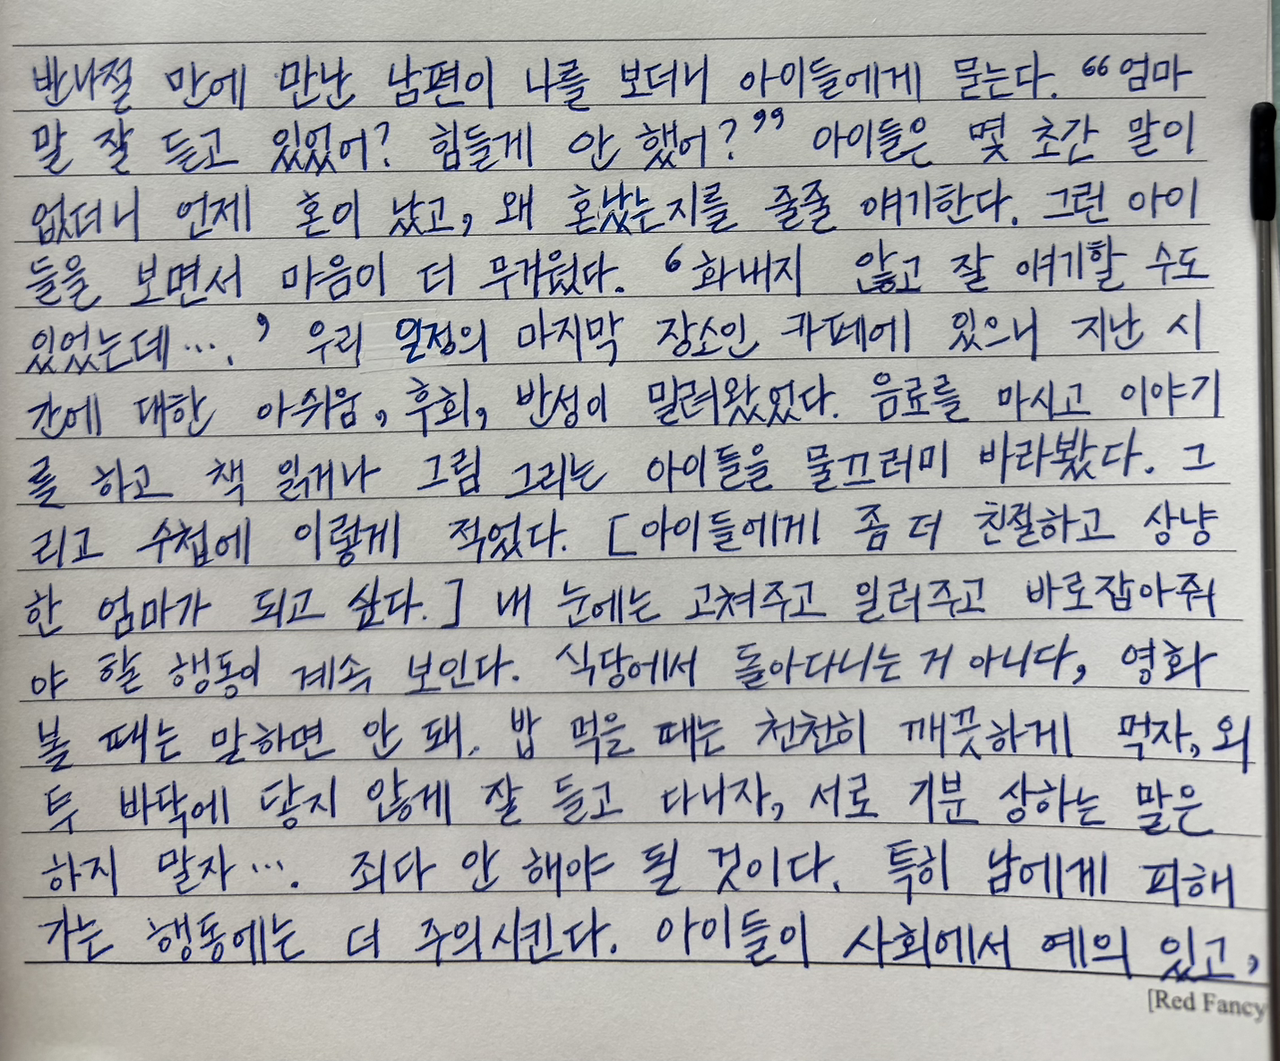 반나절 만에 만난 남편이 나를 보더니 아이들에게 묻는다. “엄마
말 잘 듣고 있었어? 힘들게 안 했어?” 아이들은 몇 초간 말이
없더니 언제 혼이 났고, 왜 혼났는지를 줄줄 얘기한다. 그런 아이
들을 보면서 마음이 더 무거웠다. ‘화내지 않고 잘 얘기할 수도
있었는데···.’ 우리 일정의 마지막 장소인 카페에 있으니 지난 시
간에 대한 아쉬움, 후회, 반성이 밀려왔었다. 음료를 마시고 이야기
를 하고 책 읽거나 그림 그리는 아이들을 물끄러미 바라봤다. 그
리고 수첩에 이렇게 적었다. [아이들에게 좀 더 친절하고 상냥
한 엄마가 되고 싶다.] 내 눈에는 고쳐주고 일러주고 바로잡아줘
야 할 행동이 계속 보인다. 식당에서 돌아다니는 거 아니다, 영화
볼 때는 말하면 안 돼. 밥 먹을 때는 천천히 깨끗하게 먹자, 외
투 바닥에 닿지 않게 잘 들고 다니자, 서로 기분 상하는 말은
하지 말자···. 죄다 안 해야 될 것이다. 특히 남에게 피해
가는 행동에는 더 주의시킨다. 아이들이 사회에서 예의 있고,
[Red Fancy